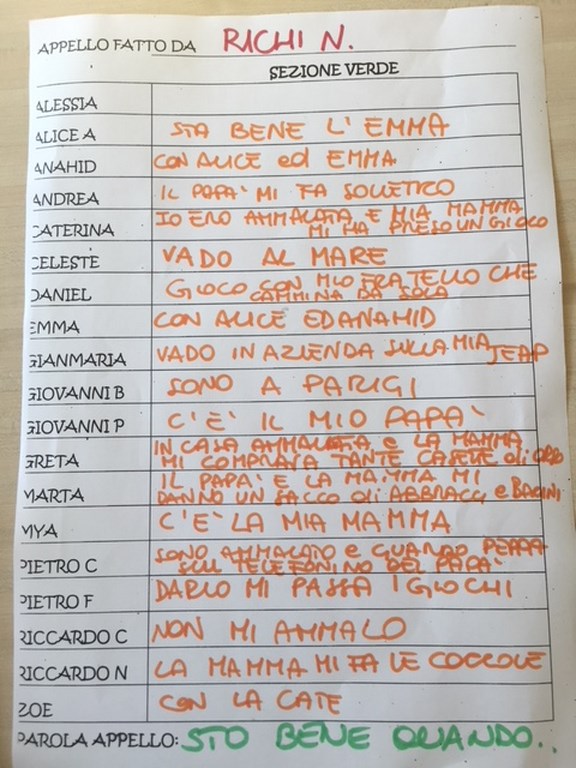 APPELLO FATTO DA RICHI N.
SEZIONE VERDE
ALESSIA
ALICE A STA BENE L'EMMA
ANAHID CON ALICE ed EMMA
ANDREA IL PAPA' MI FA SOLLETICO
CATERINA IO ERO AMMALATA E MIA MAMMA
MI HA PRESO UN GIOCO
CELESTE VADO AL MARE
DANIEL GIOCO CON MIO FRATELLO CHE
CAMMINA DA SOLO
EMMA CON ALICE ED ANAHID
GIANMARIA VADO IN AZIENDA SULLA MIA JEAP
GIOVANNI B SONO A PARIGI
GIOVANNI P C'E' IL MIO PAPA'
GRETA IN CASA AMMALATA e LA MAMMA
MI COMPRAVA TANTE CASETE di
MARTA IL PAPA' E LA MAMMA MI
DANNO UN SACCO di ABBRACCI e BACINI
MYA C'E' LA MIA MAMMA
PIETRO C SONO AMMALATO e GUARDO PEPPA
SUL TELEFONINO DEL PAPA'
PIETRO F DARIO MI PASSA I GIOCHI
RICCARDO C NON MI AMMALO
RICCARDO N LA MAMMA MI FA LE COCCOLE
ZOE CON LA CATE
PAROLA APPELLO: STO BENE QUANDO..